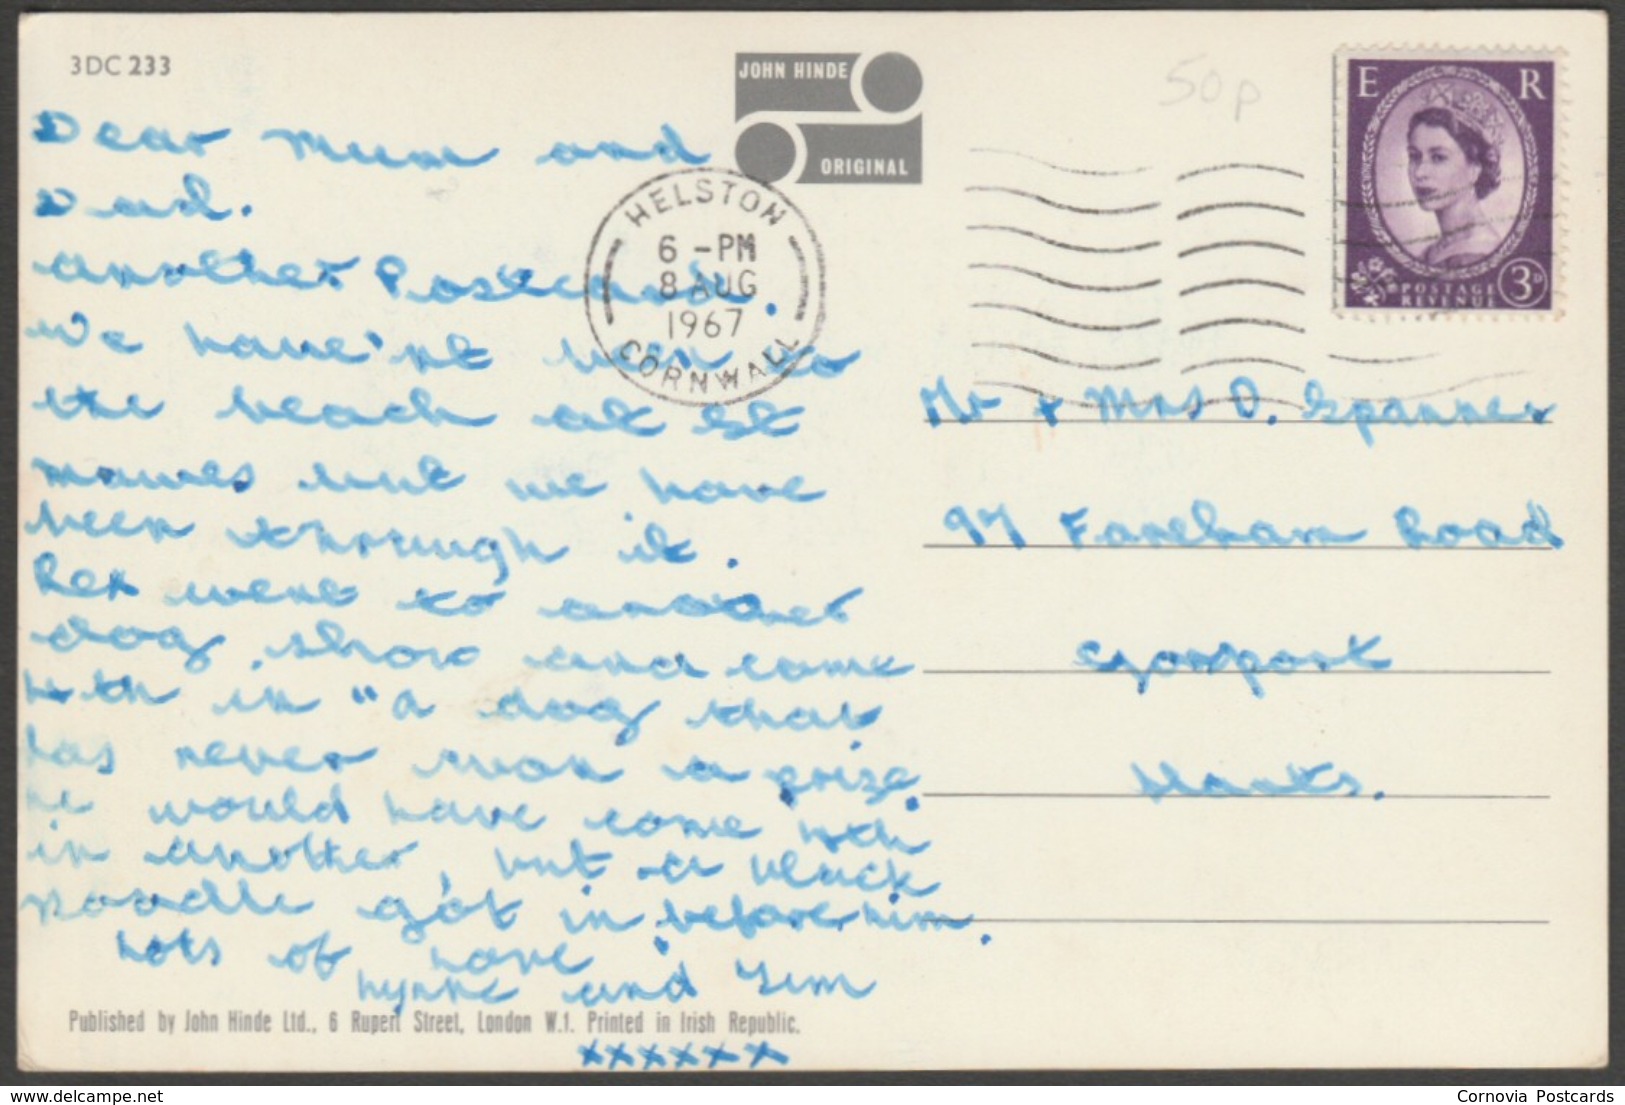 3DC 233
JOHN HINDE
ORIGINAL
50p
E R
POSTAGE
REVENUE
3D
HELSTON
6 - PM
8 AUG
1967
CORNWALL
Dear Mum and
Dad.
another Postcard.
We have'nt been to
the beach at St
Mawes but we have
been through it.
Rex went to another
dog show and came
4th in "a dog that
has never won a prize
he would have come 4th
in another, but a black
poodle got in before him.
Lots of love
Lynne and Jim
xxxxxx
Mr + Mrs D. Spanner
97 Fareham Road
Gosport
Hants.
Published by John Hinde Ltd., 6 Rupert Street, London W.1. Printed in Irish Republic.
delcampe.net
Cornovia Postcards